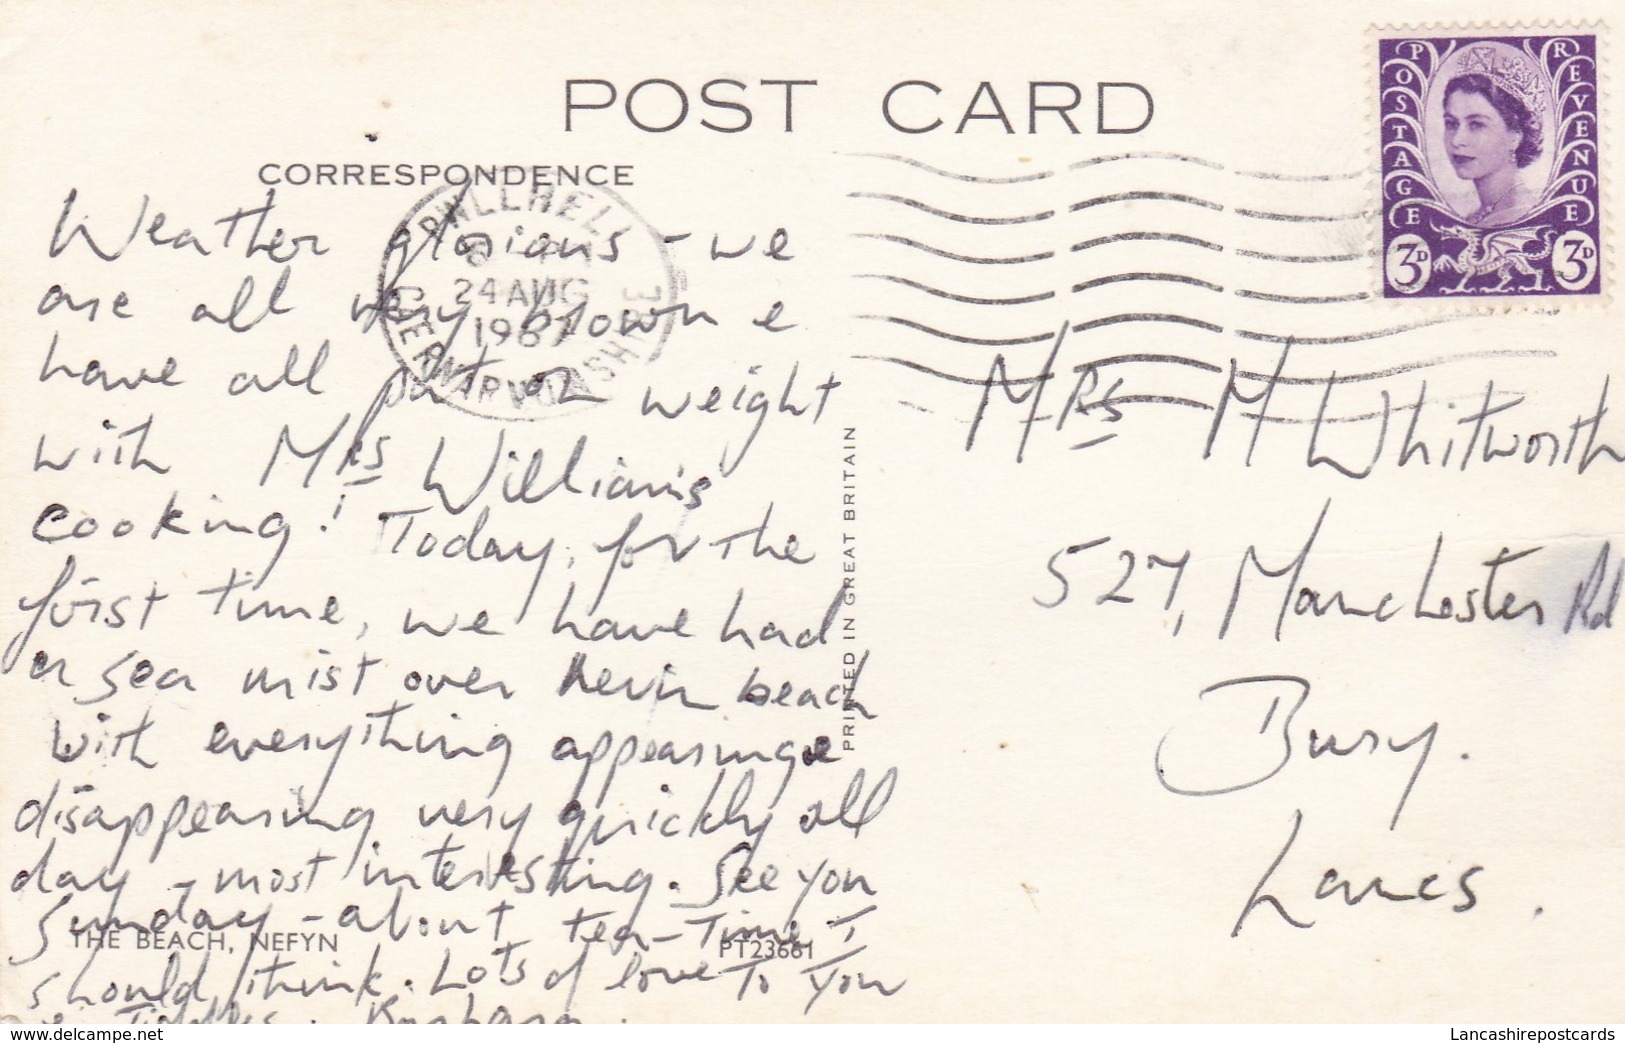 POST CARD
CORRESPONDENCE
PWLLHELI
24 AUG
1967
CAERNARVONSHIRE
POSTAGE
REVENUE
3D
3D
Weather glorious - we
are all very brown &
have all put on weight
with Mrs Williams
cooking! Today, for the
first time, we have had
a sea mist over Nevin beach
with everything appearing &
disappearing very quickly all
day - most interesting. See you
Sunday - about tea-time I
should think. Lots of love to you
Barbara.
THE BEACH, NEFYN
PT23661
PRINTED IN GREAT BRITAIN
Mrs M Whitworth
527, Manchester Rd
Bury.
Lancs.
www.delcampe.net
Lancashirepostcards